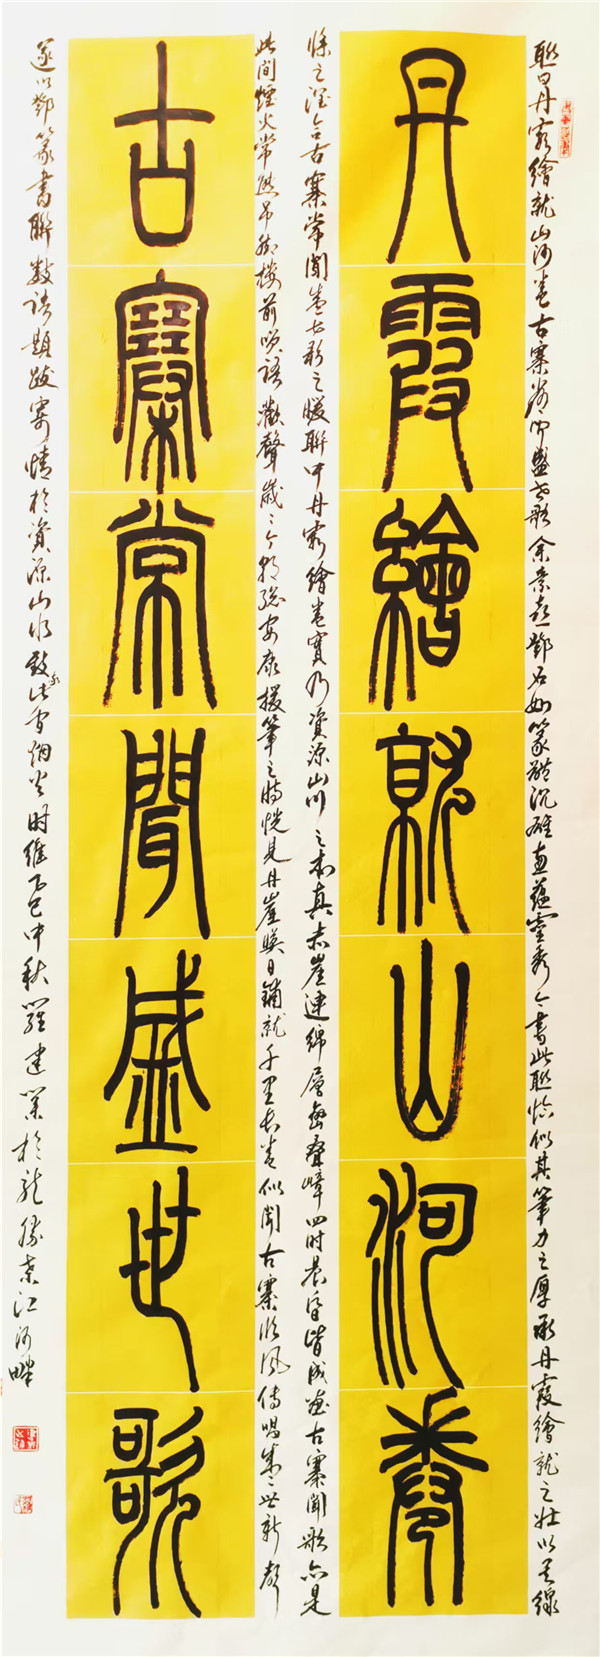 聯曰丹霞繪就山河卷古寨常聞盛世歌余素喜鄧石如篆體沉雄蘊靈秀今書此聯恰似其筆力之厚承丹霞繪就之壯以墨線
丹霞繪就山河卷
條之潤合古寨常聞盛世歌之暖聯中丹霞繪卷實乃資源山川之本真赤崖連綿層巒叠嶂四时晨昏皆成畫古寨聞歌亦是
此間煙火常態吊腳樓前笑語歡聲歲々今朝總安康援筆之時恍見丹崖映日鋪就千里長卷似聞古寨臨風傳唱盛世新聲
古寨常聞盛世歌
遂以鄧篆書聯數語題跋寄情於資源山水致於此方烟火时維乙巳中秋羅建業於龍勝桑江河畔